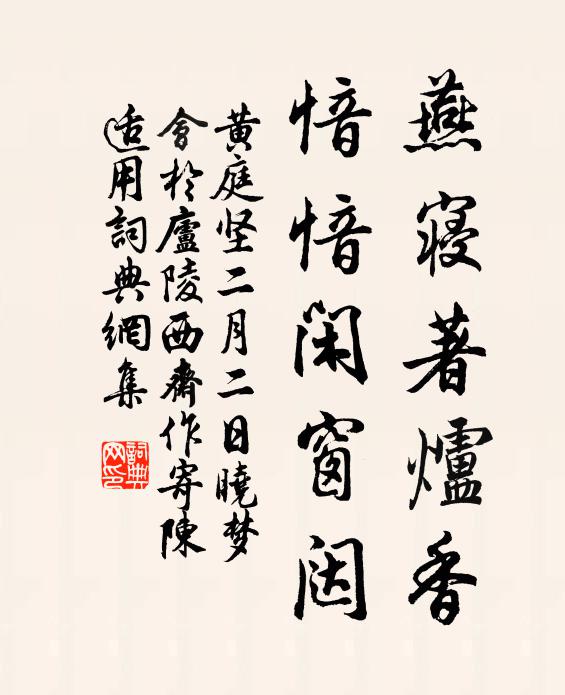 燕寢著爐香
愔愔闲窗闼
黄庭坚二月二日曉梦
會於廬陵西齋作寄陳
适用詞典網集
詞典网印